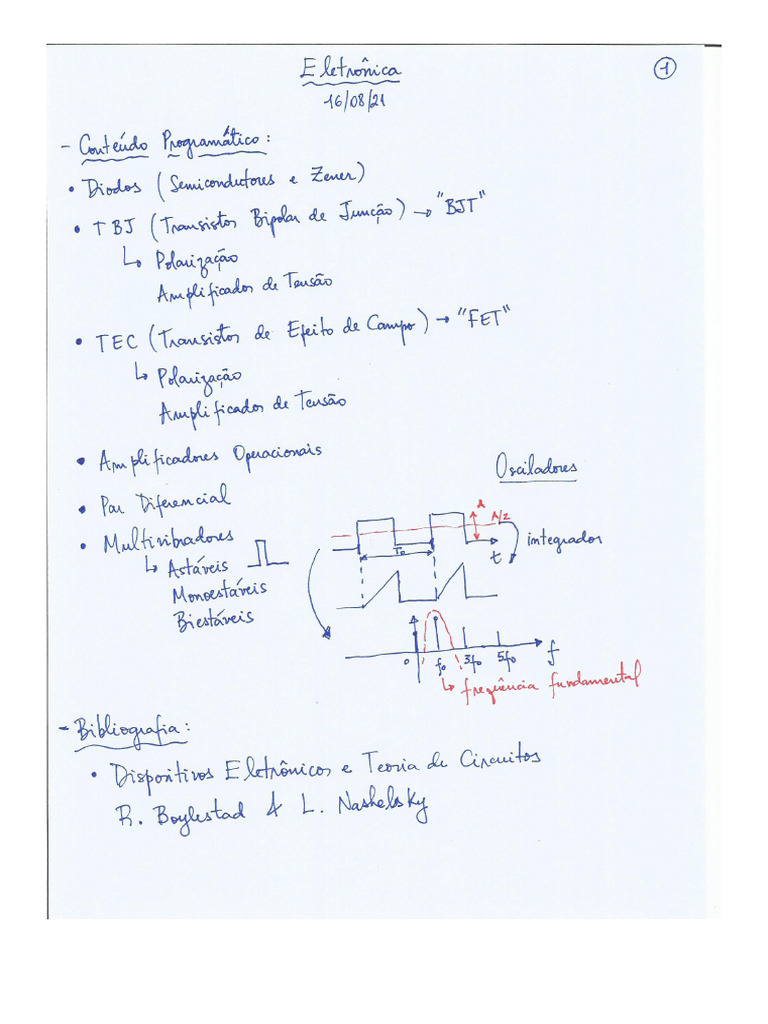 Eletrônica
1
16/08/21
- Conteúdo Programático:
• Diodos (Semicondutores e Zener)
• TBJ (Transistos Bipolar de Junção) → "BJT"
↳ Polarização
Amplificados de Tensão
• TEC (Transistos de Efeito de Campo) → "FET"
↳ Polarização
Amplificados de Tensão
• Amplificadores Operacionais
Osciladores
• Par Diferencial
A
A/2
• Multivibradores
T₀
t
integrador
↳ Astáveis
Monoestáveis
Biestáveis
0 f₀ 3f₀ 5f₀ f
↳ freqüência fundamental
- Bibliografia:
• Dispositivos Eletrônicos e Teoria de Circuitos
R. Boylestad & L. Nashelsky